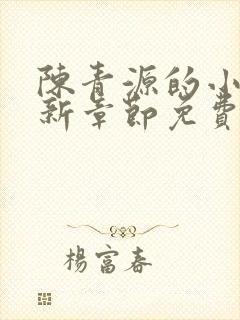 陳青源的小
新章節免費
楊富春